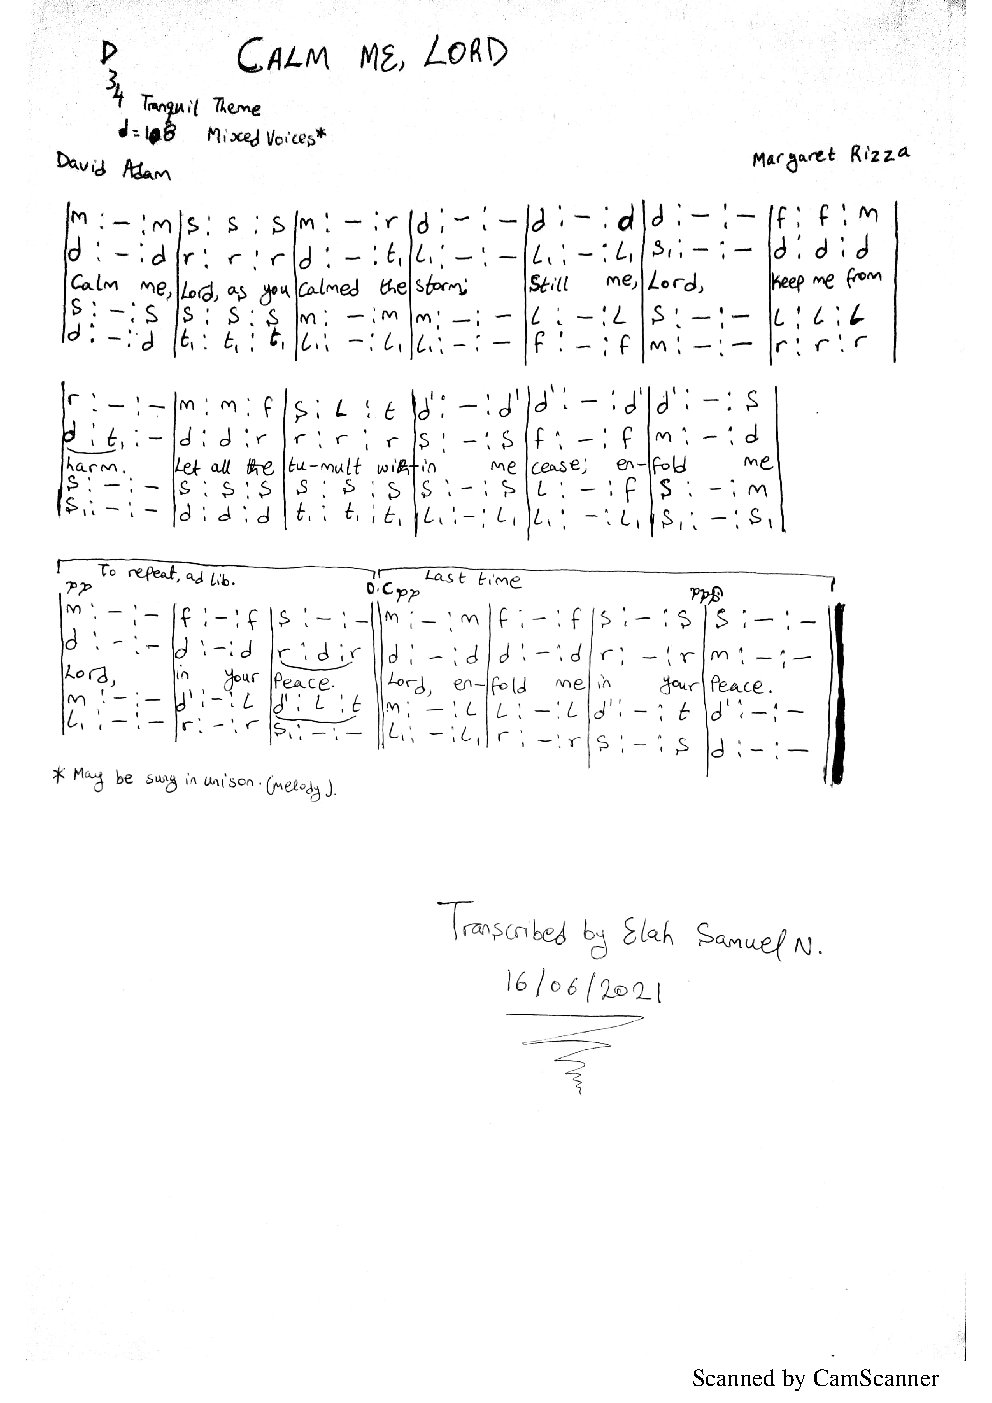 D CALM ME, LORD
3/4 Tranquil Theme
d=108 Mixed Voices*
David Adam Margaret Rizza
|m : – : m|s : s : s|m : – : r|d : – : –|d : – : d|d : – : –|f : f : m|
d : – : d|r : r : r|d : – : t₁|L₁ : – : –|L₁ : – : L₁|S₁ : – : –|d : d : d
Calm me, Lord, as you calmed the storm; Still me, Lord, keep me from
S : – : S|S : S : S|m : – : m|m : – : –|L : – : L|S : – : –|L : L : L
d : – : d|t₁ : t₁ : t₁|L₁ : – : L₁|L₁ : – : –|f : – : f|m : – : –|r : r : r
|r : – : –|m : m : f|S : L : t|d' : – : d'|d' : – : d'|d' : – : S|
d : t₁ : –|d : d : r|r : r : r|S : – : S|f : – : f|m : – : d
harm. Let all the tu-mult with-in me cease; en-fold me
S : – : –|S : S : S|S : S : S|S : – : S|L : – : f|S : – : m
S₁ : – : –|d : d : d|t₁ : t₁ : t₁|L₁ : – : L₁|L₁ : – : L₁|S₁ : – : S₁
To repeat, ad Lib. Last time
pp D.C pp pp
m : – : –|f : – : f|S : – : –||m : – : m|f : – : f|S : – : S|S : – : –
d : – : –|d : – : d|r : d : r||d : – : d|d : – : d|r : – : r|m : – : –
Lord, in your Peace. Lord, en-fold me in your Peace.
m : – : –|d' : – : L|d' : L : t||m : – : L|L : – : L|d' : – : t|d' : – : –
L₁ : – : –|r : – : r|S₁ : – : –||L₁ : – : L₁|r : – : r|S : – : S|d : – : –
* May be sung in unison. (Melody).
Transcribed by Elah Samuel N.
16/06/2021
Scanned by CamScanner